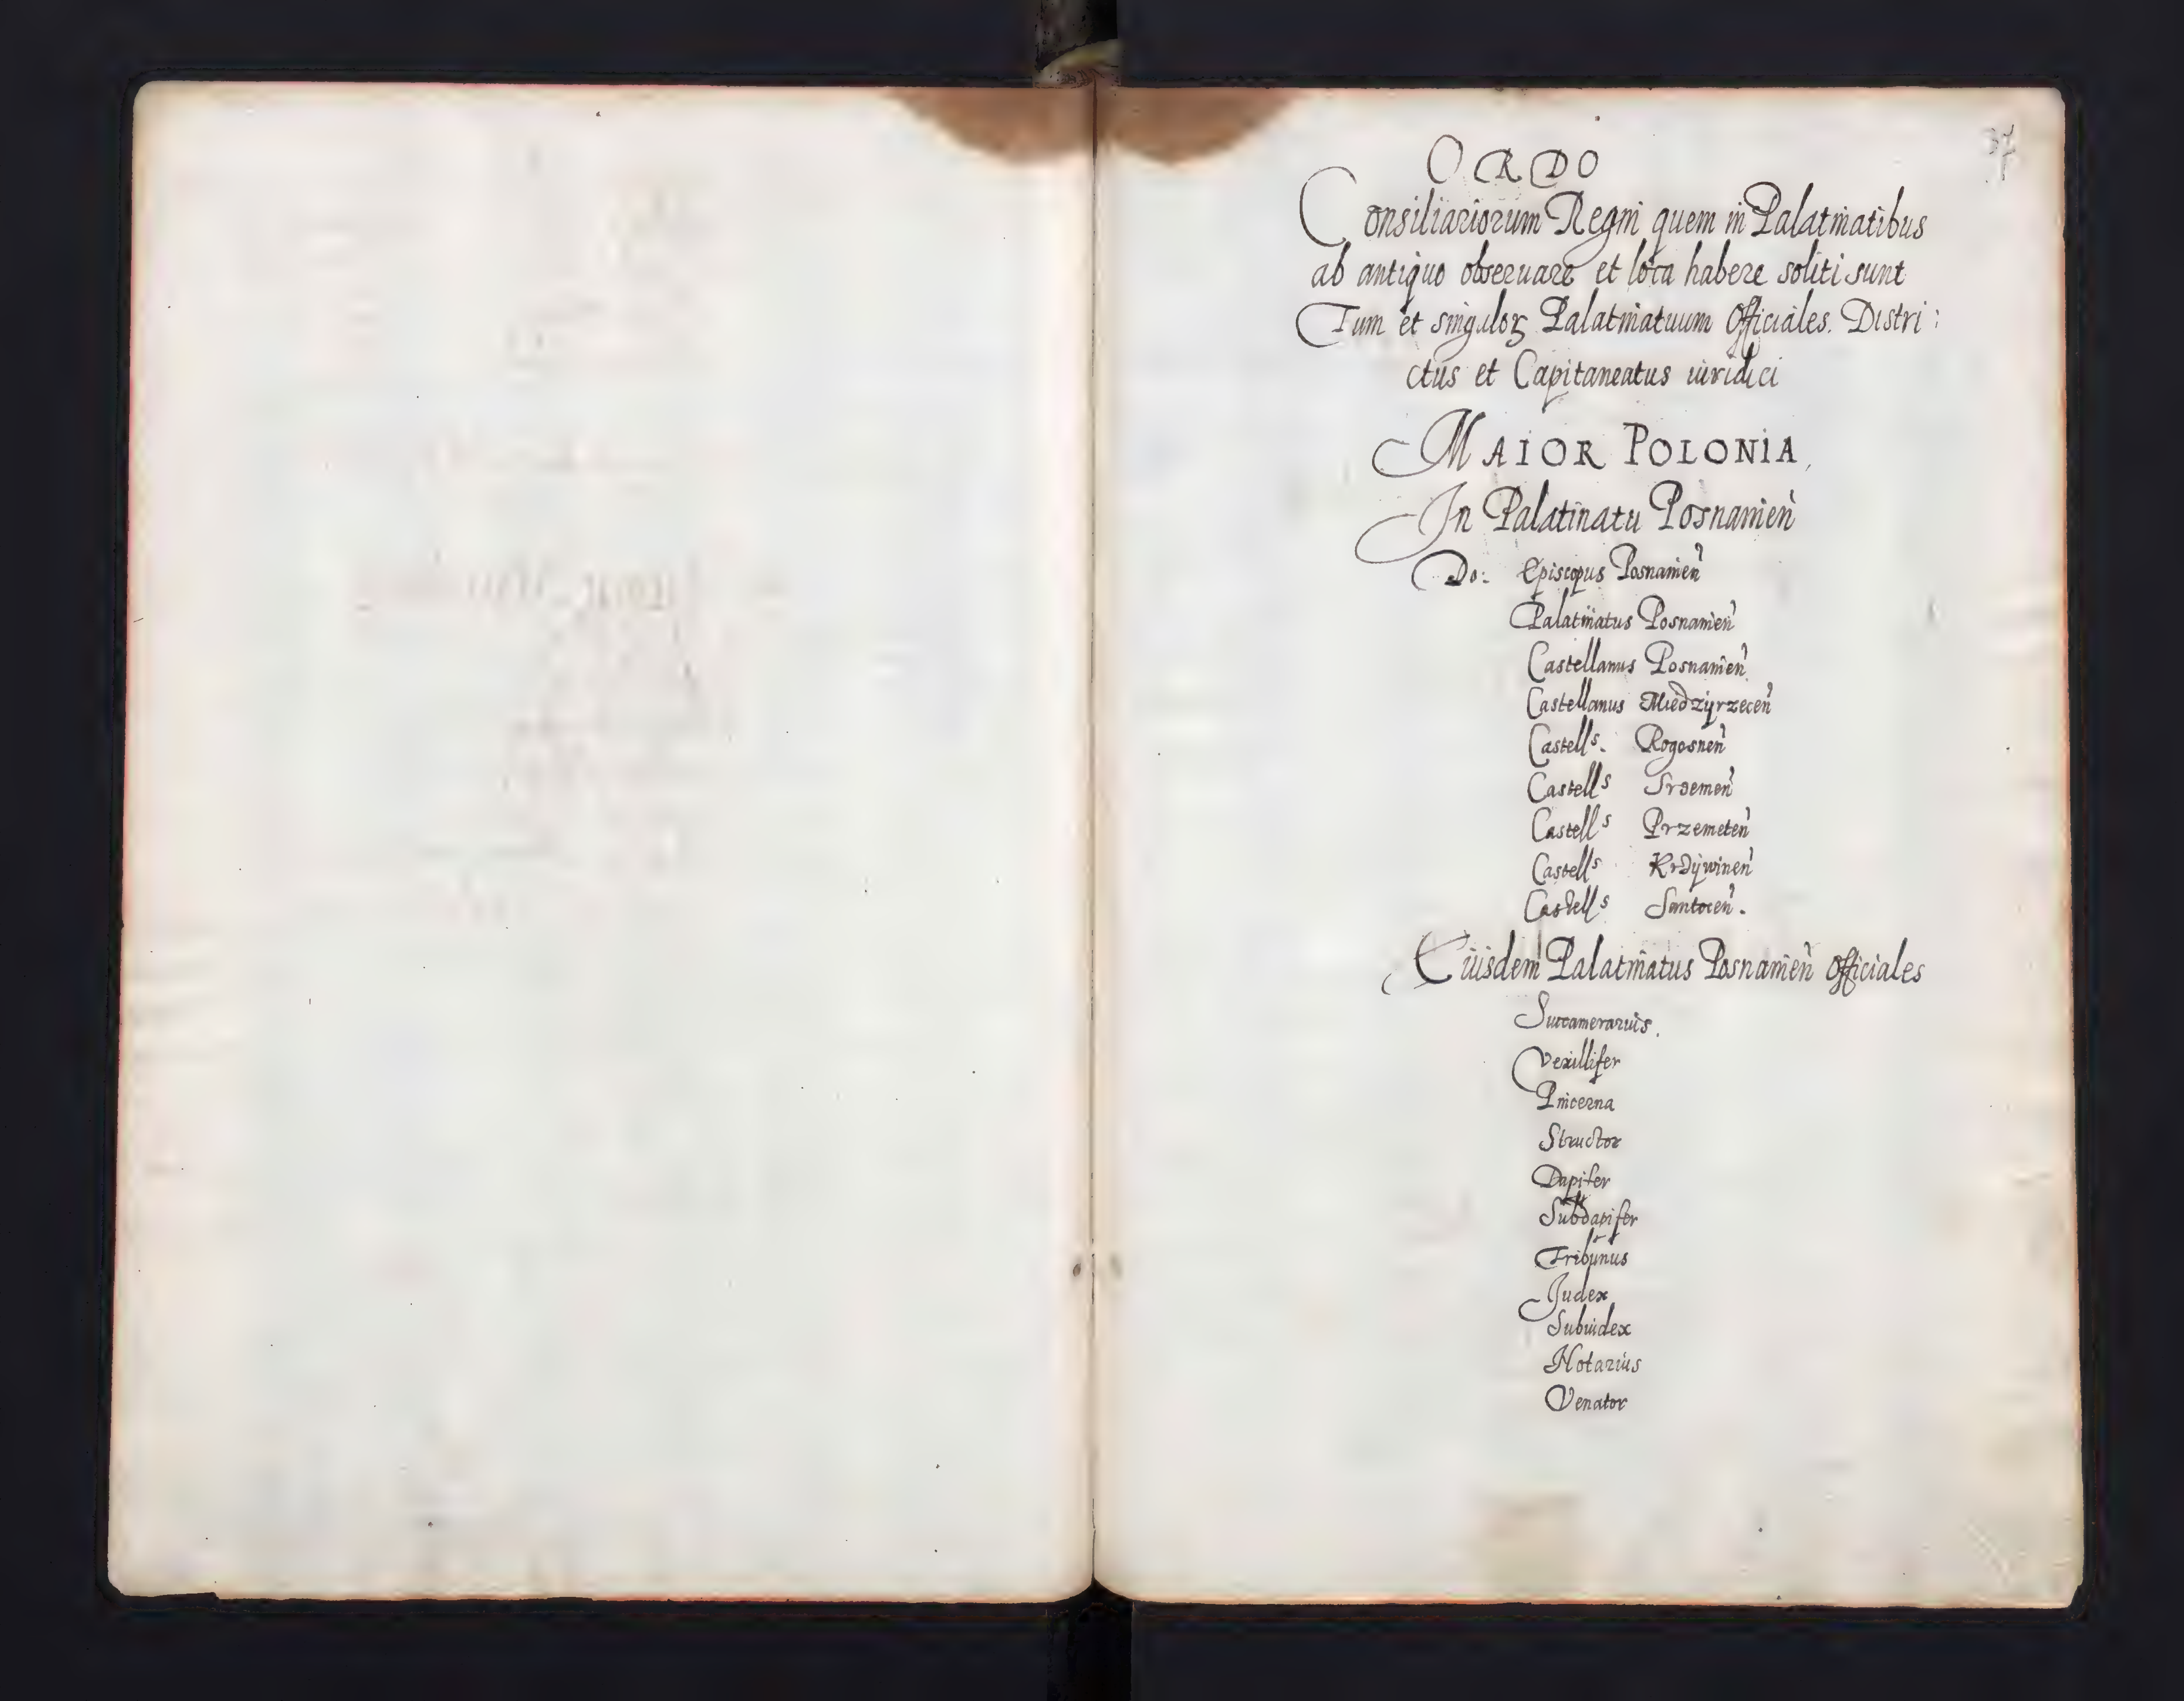 37
ORDO
Consiliariorum Regni quem in Palatinatibus
ab antiquo obseruare et loca habere soliti sunt
Tum et singuloꝝ Palatinatuum Officiales. Distri:
ctus et Capitaneatus iuridici
MAIOR POLONIA,
In Palatinatu Posnanien̓
Do: Episcopus Posnanien̓
Palatinatus Posnanien̓
Castellanus Posnanien̓
Castellanus Miedzÿrzecen̓
Castellˢ. Rogosnen̓
Castellˢ Sremen̓
Castellˢ Przemeten̓
Castellˢ Krzÿwinen̓
Castellˢ Santocen̓.
Eiusdem Palatinatus Posnanien̓ Officiales
Succamerarius.
Vexillifer
Pincerna
Structor
Dapifer
Subdapifer
Tribunus
Judex
Subiudex
Notarius
Venator